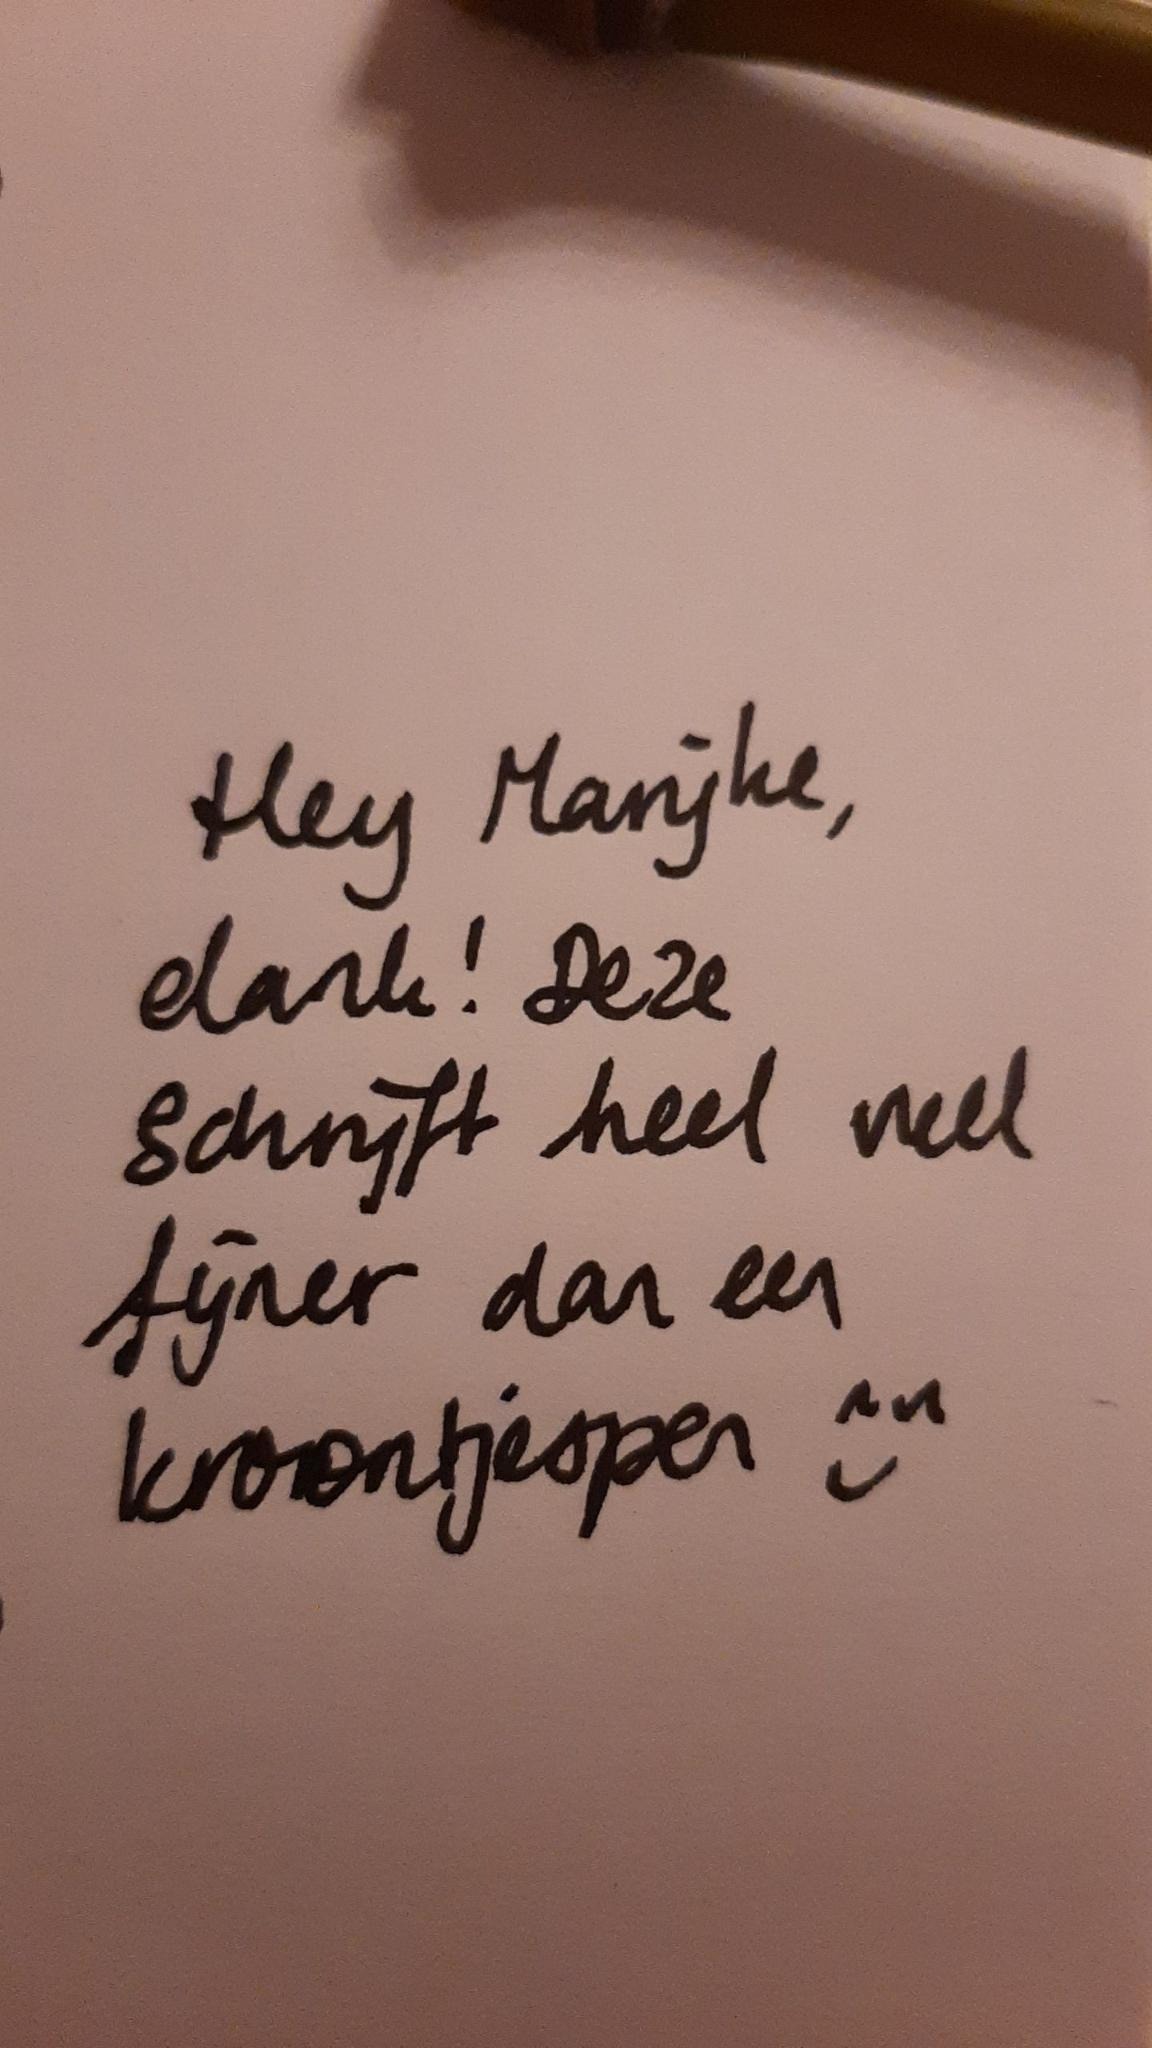 Hey Marijke,
dank! Deze
schrijft heel veel
fijner dan een
kroontjespen